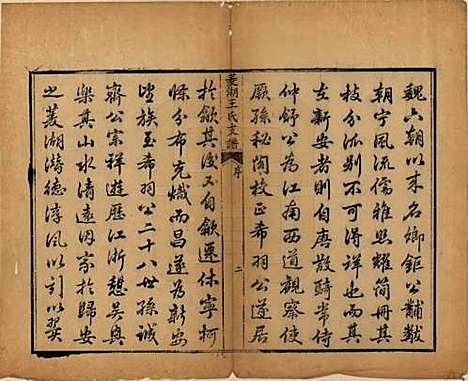 魏六朝以来名卿鉅公黼黻
朝宁風流儒雅照耀簡冊其
枝分派别不可得詳也而其
在新安者則自唐散騎常侍
仲舒公為江南西道觀察使
厥孫秘閣校正希羽公遂居
菱湖王氏支譜
序
二
於歙其後又自歙遷休寧柯
條分布充熾而昌遂為新安
望族至希羽公二十八世孫誠
齋公宗祥遊歷江浙憩吳興
樂其山水清遠因家於歸安
之菱湖濤德淳風以引以翼